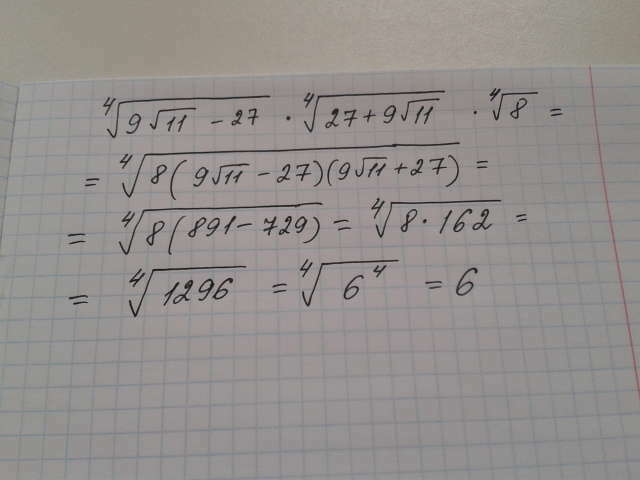 ⁴√(9√11 - 27) · ⁴√(27 + 9√11) · ⁴√8 =
= ⁴√(8(9√11 - 27)(9√11 + 27)) =
= ⁴√(8(891 - 729)) = ⁴√(8 · 162) =
= ⁴√1296 = ⁴√(6⁴) = 6